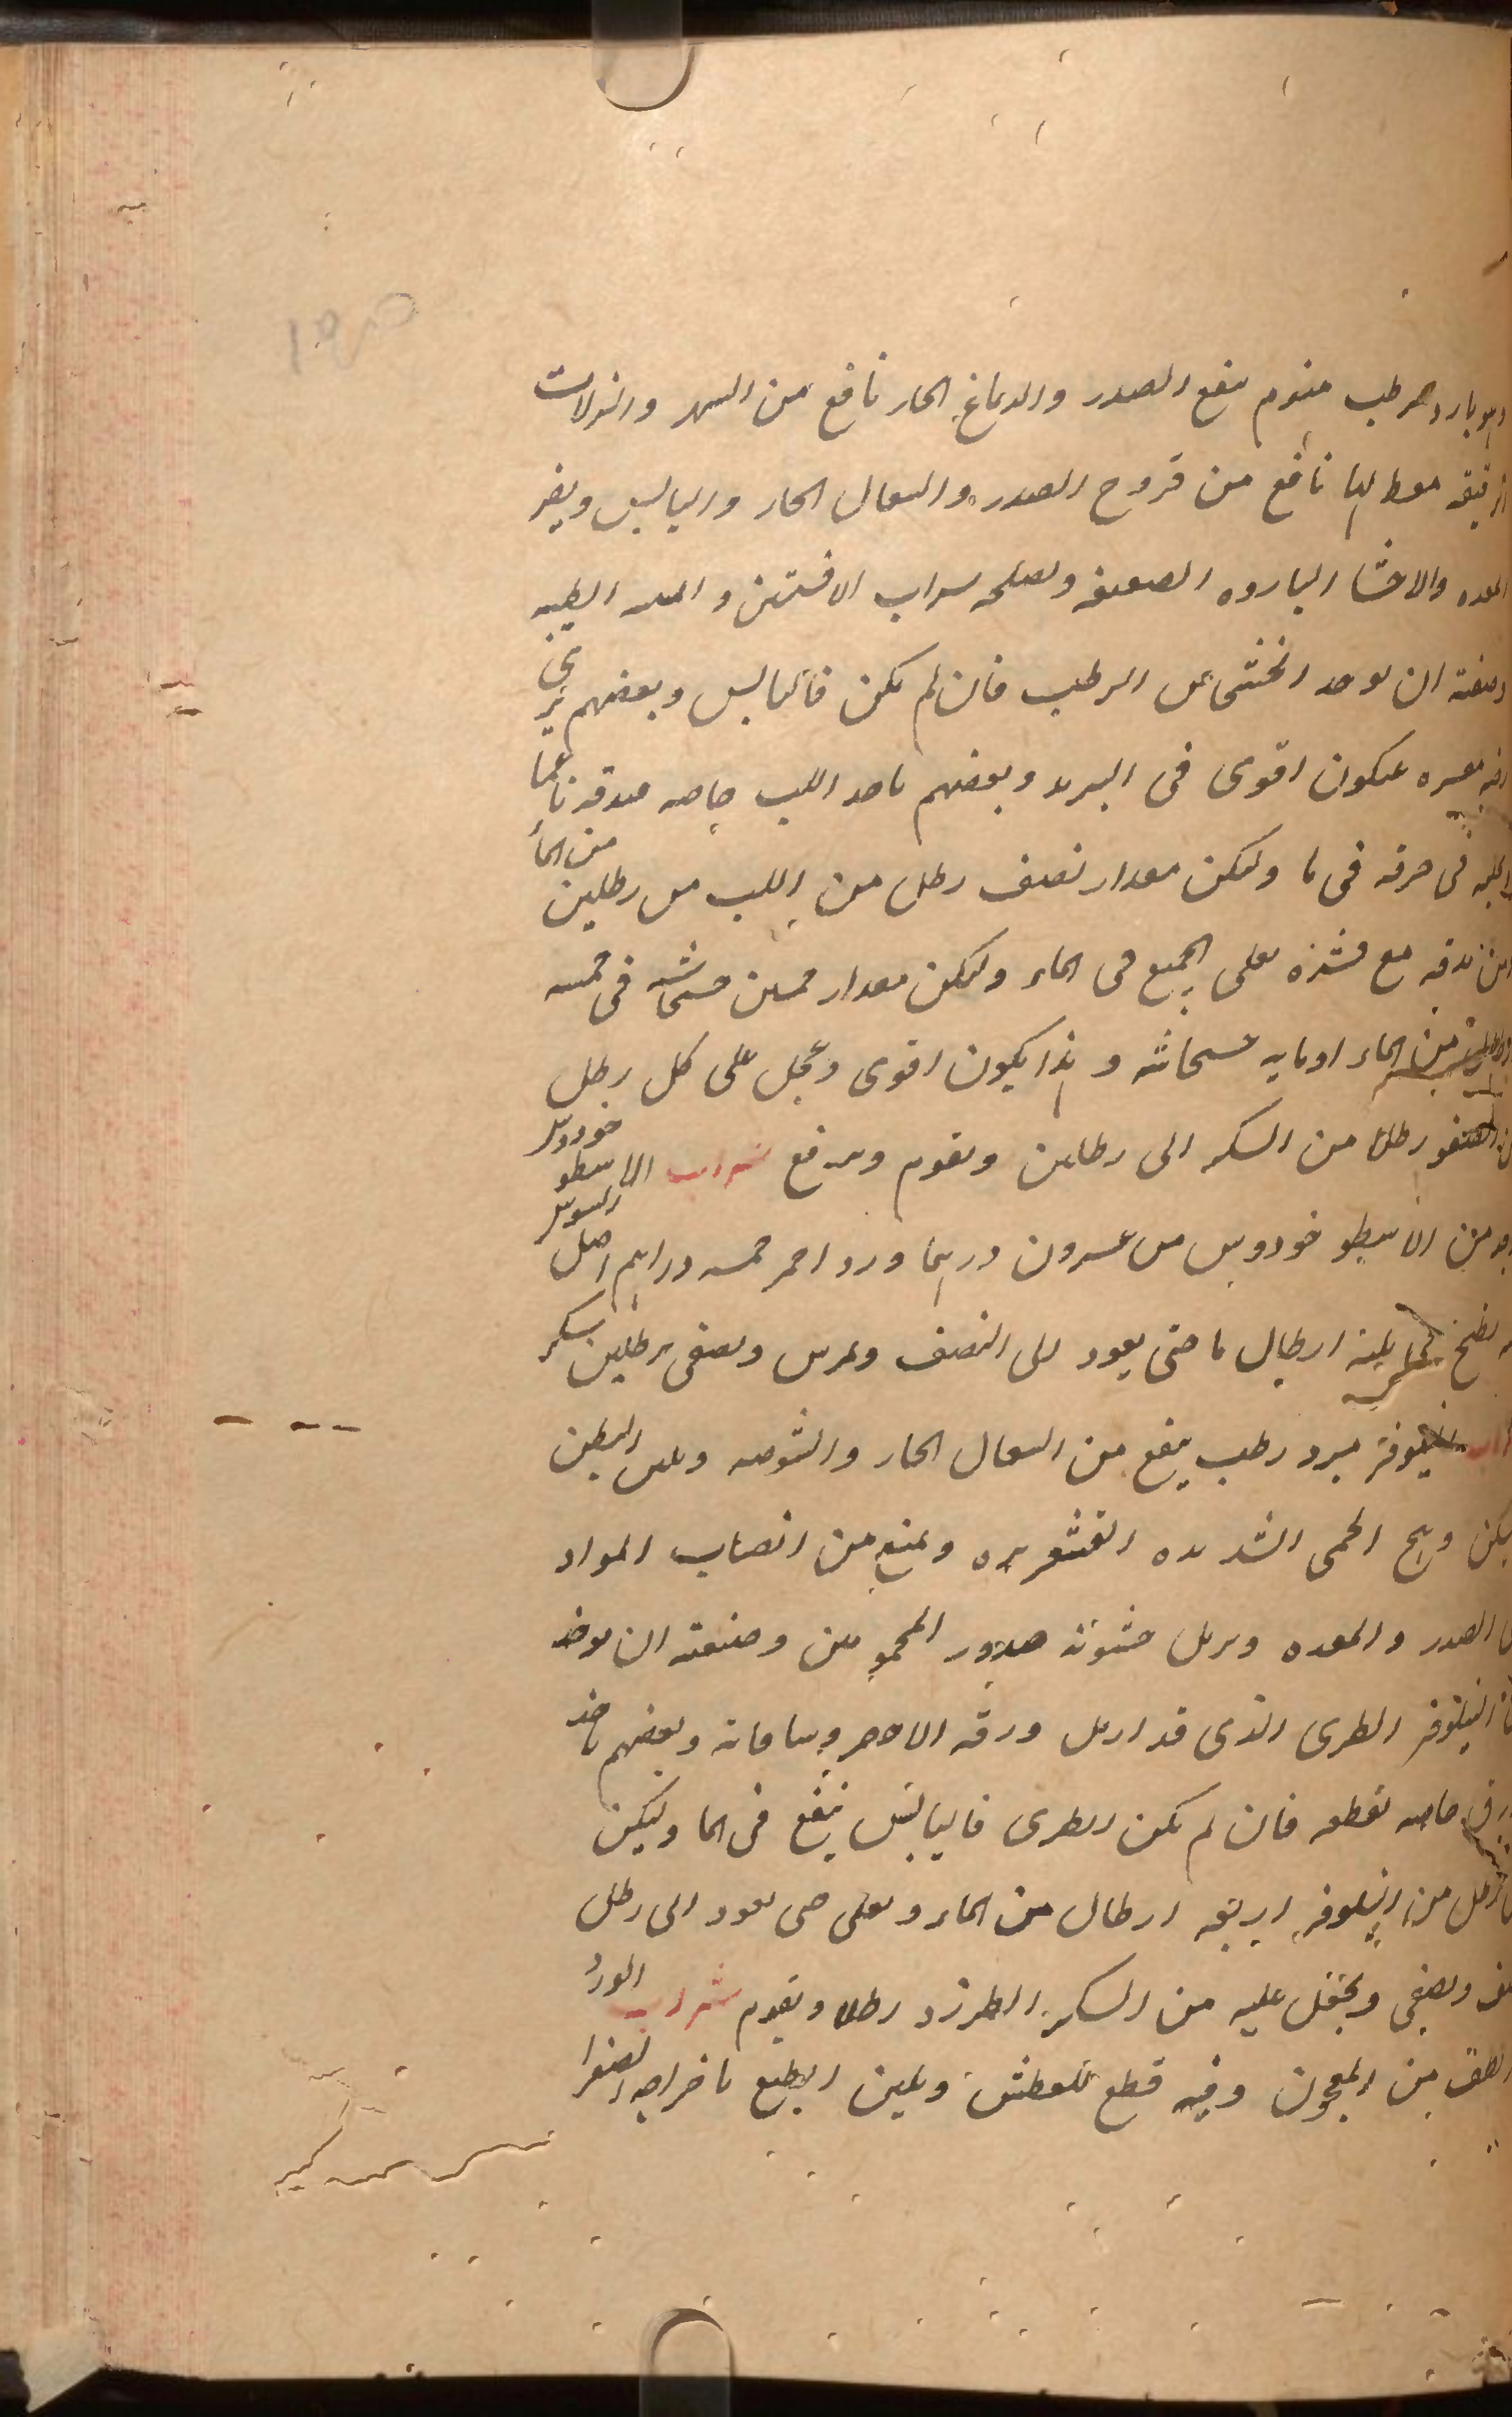 وهو بارد مرطب منوم ينفع الصدر والدماغ الحار نافع من السهر والنزلات
الرقيقه نافع من قروح الصدر والسعال الحار واليابس ويضر
المعده والاحشا البارده الضعيفه ويصلحه سراب الافسنتين و الطيبه
وصنعته ان يوخد الخشخاش الرطب فان لم يكن فاليابس وبعضهم يرمي
فيكون اقوى فى التبريد وبعضهم ياخد اللب خاصه فيدقه ناعما
فى خرقه فى ما وليكن مقدار نصف رطل من اللب من رطلين من الما
يدقه مع قشره يغلى الجميع فى الماء وليكن مقدار خمسين خشخاشه فى خمسه
من الماء اومايه خشخاشه وهذا يكون اقوى ويجعل على كل رطل
رطل من السكر الى رطلين ويقوم ويرفع شراب الاسطو خودوس
من الاسطو خودوس عسرون درهما ورد احمر خمسه دراهم اصل السوس
يطبخ ارطال ما حتى يعود الى النصف ويمرس ويصفى برطلين سكر
نيلوفر مبرد رطب ينفع من السعال الحار والشوصه ويلين البطن
وهج الحمى الشديده القشعريره ويمنع من انصاب المواد
الصدر والمعده ويزيل خشونه صدور المحمومين وصنعته ان يوخد
النيلوفر الطرى الذى قد ازيل ورقه الاخضر وبعضهم ياخد
خاصه فقطعه فان لم يكن الطرى فاليابس ينقع فى الما وليكن
رطل من النيلوفر اربعه ارطال من الماء ويغلى حتى يعود الى رطل
ويصفى ويجعل عليه من السكر الطبرزد رطلا ويقوم شراب الورد
الطف من المعجون وفيه قطع للعطش ويلين الطبع باخراجه الصفرا